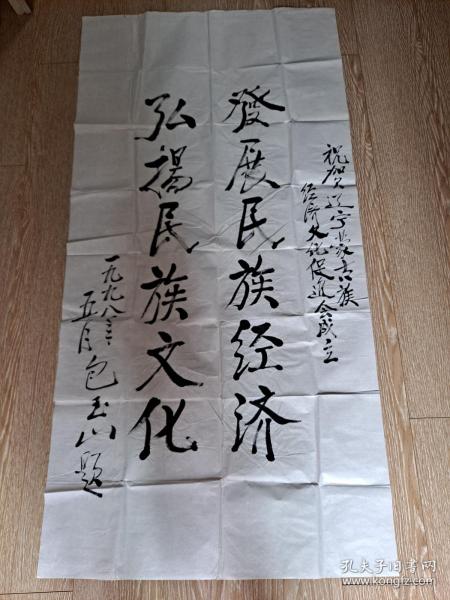 祝贺辽宁蒙古族
经济文化促进会成立
發展民族经济
弘揚民族文化
一九九八年
五月包玉山题
孔夫子旧书网
www.kongfz.com